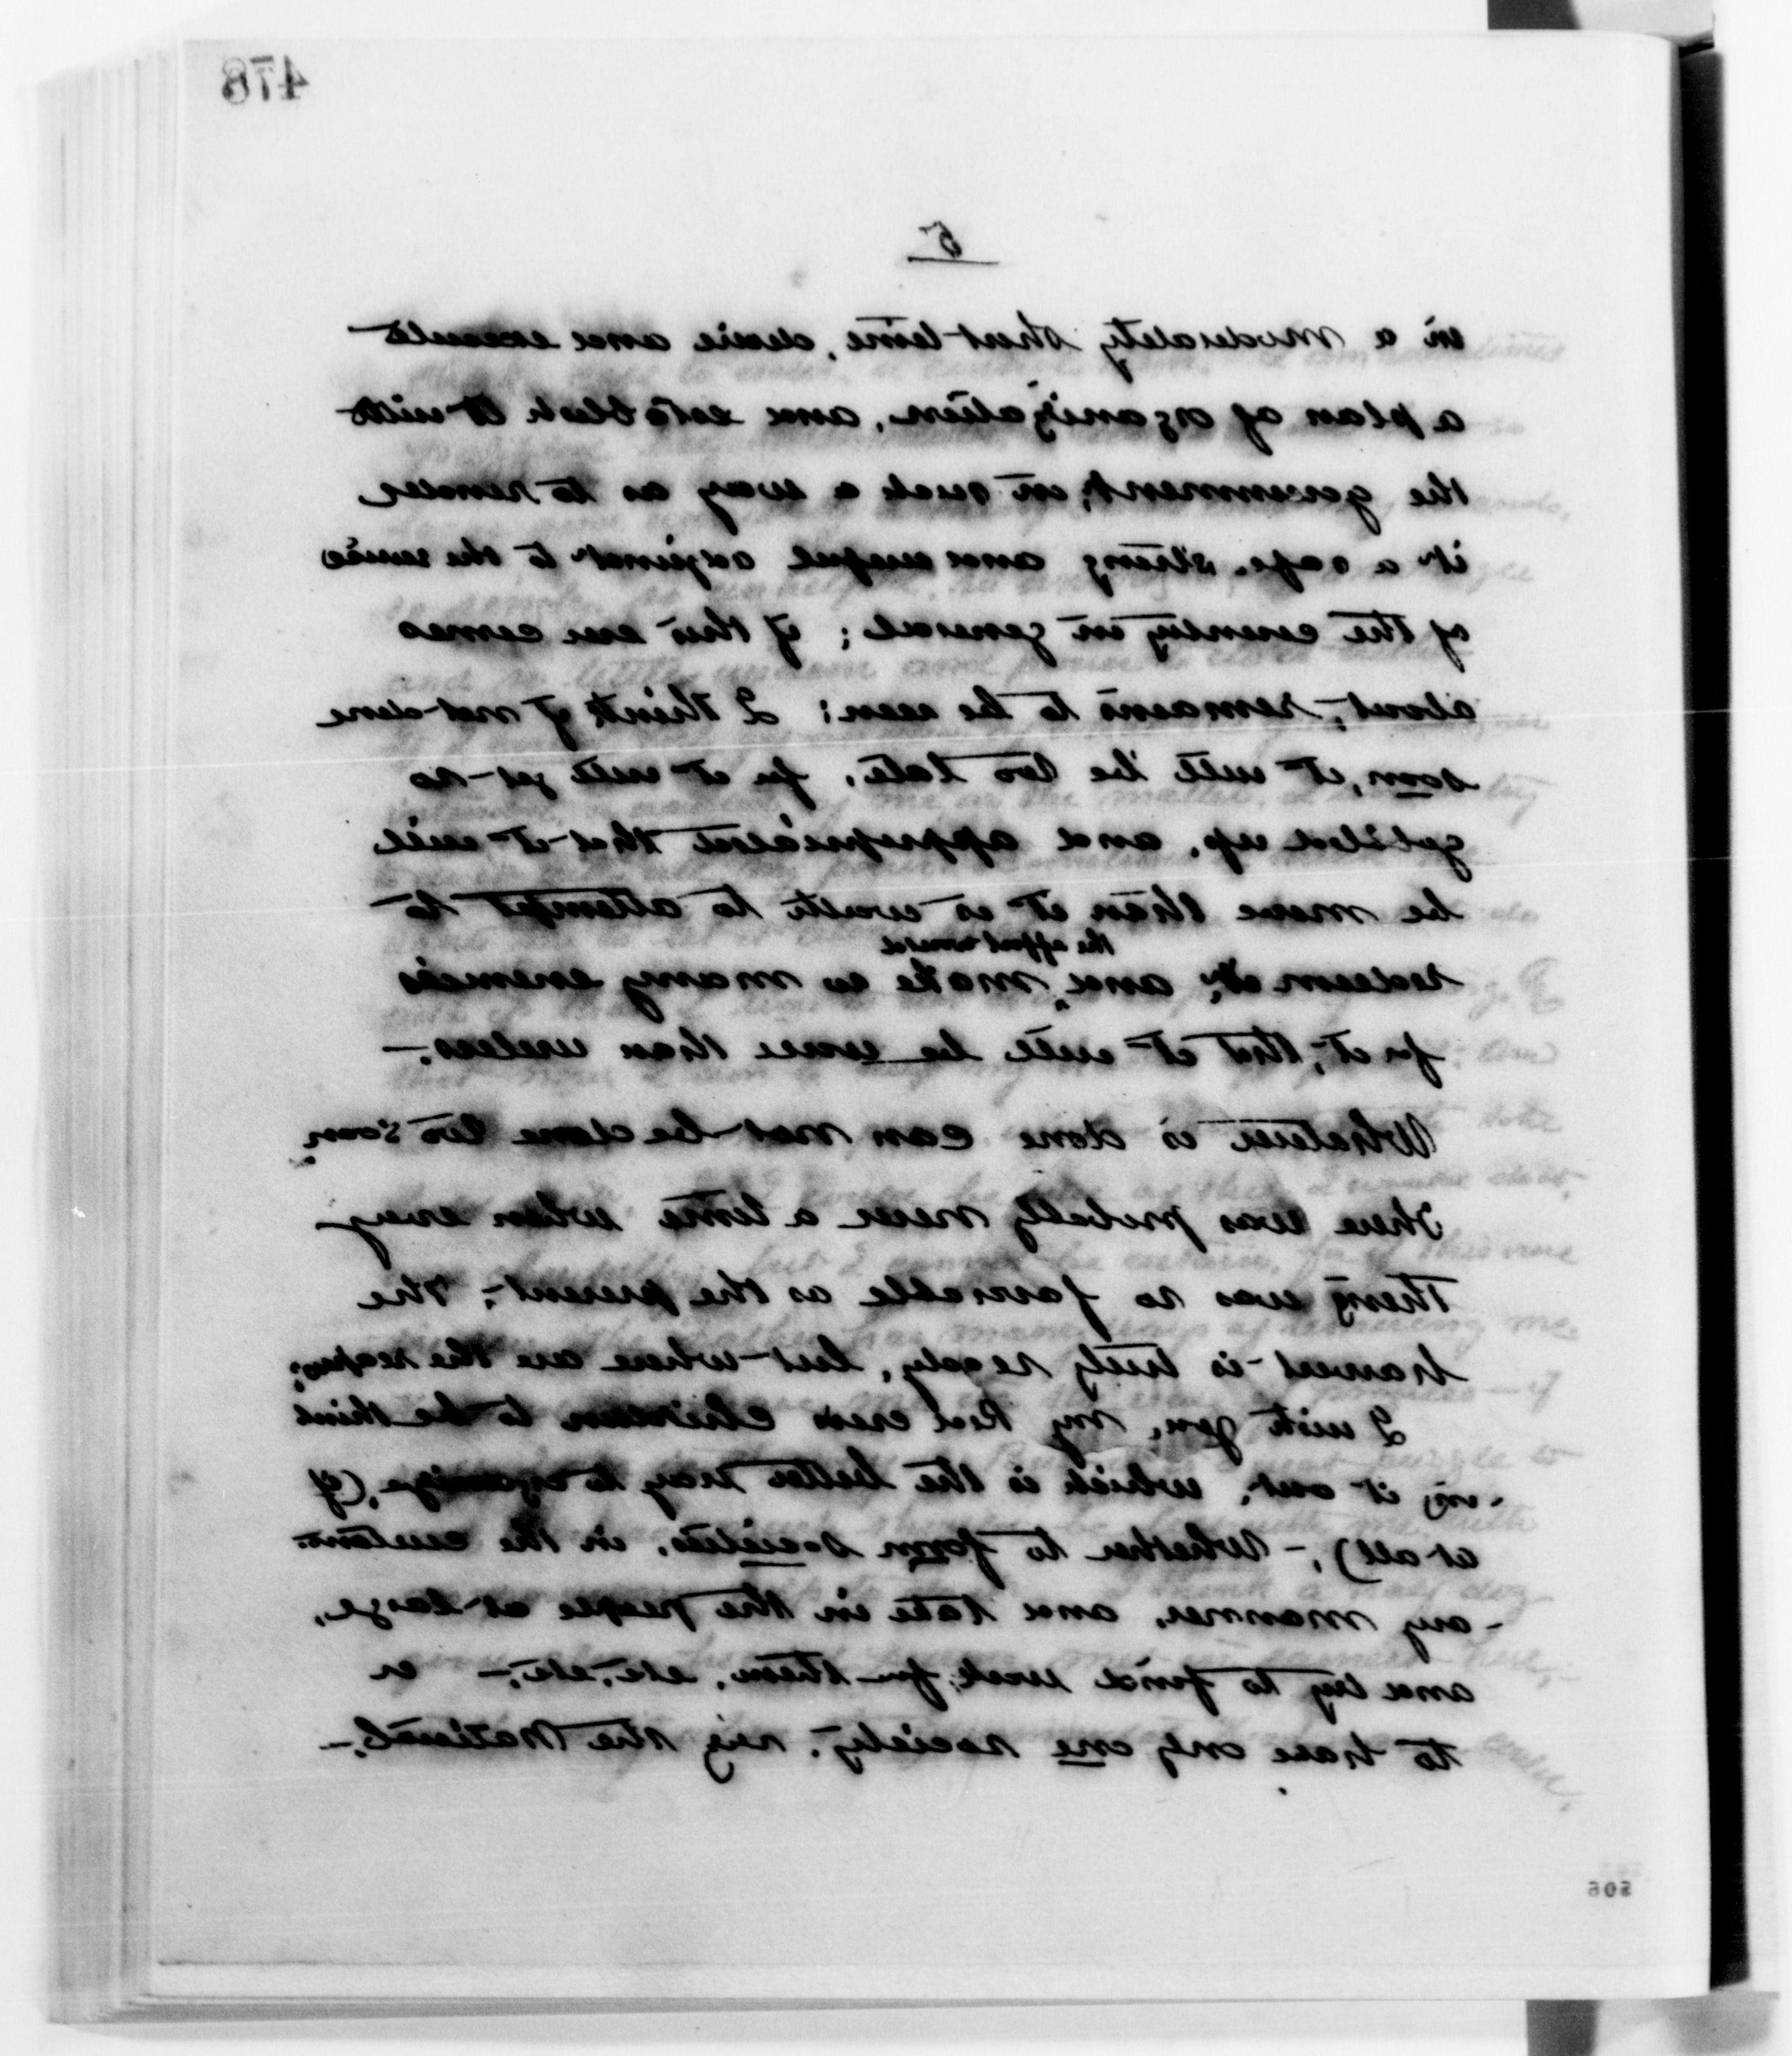 478
5
in a moderately short time, devise and execute
a plan of organization, and establish it with
the government, in such a way as to render
it a safe, strong and useful adjunct to the service
of the country in general; if this ever comes
about, remains to be seen; I think if not done
soon, it will be too late, for it will get so
gobbled up, and appropriated that it will
be more than it is worth to attempt to
redeem it, and the effort would make so many enemies
for it, that it will be worse than useless.–
Whatever is done can not be done too soon,
There was probably never a time when every
thing was so favorable as the present; The
harvest is truly ready, but where are the reapers;
I wish you, my Red Cross Children to be think
-ing it out, which is the better way to organize, (if
at all),– Whether to form societies, in the custom-
-ary manner, and take in the people at large,
and try to find work for them, etc, etc,– or
to have only one society, viz the National,–
506